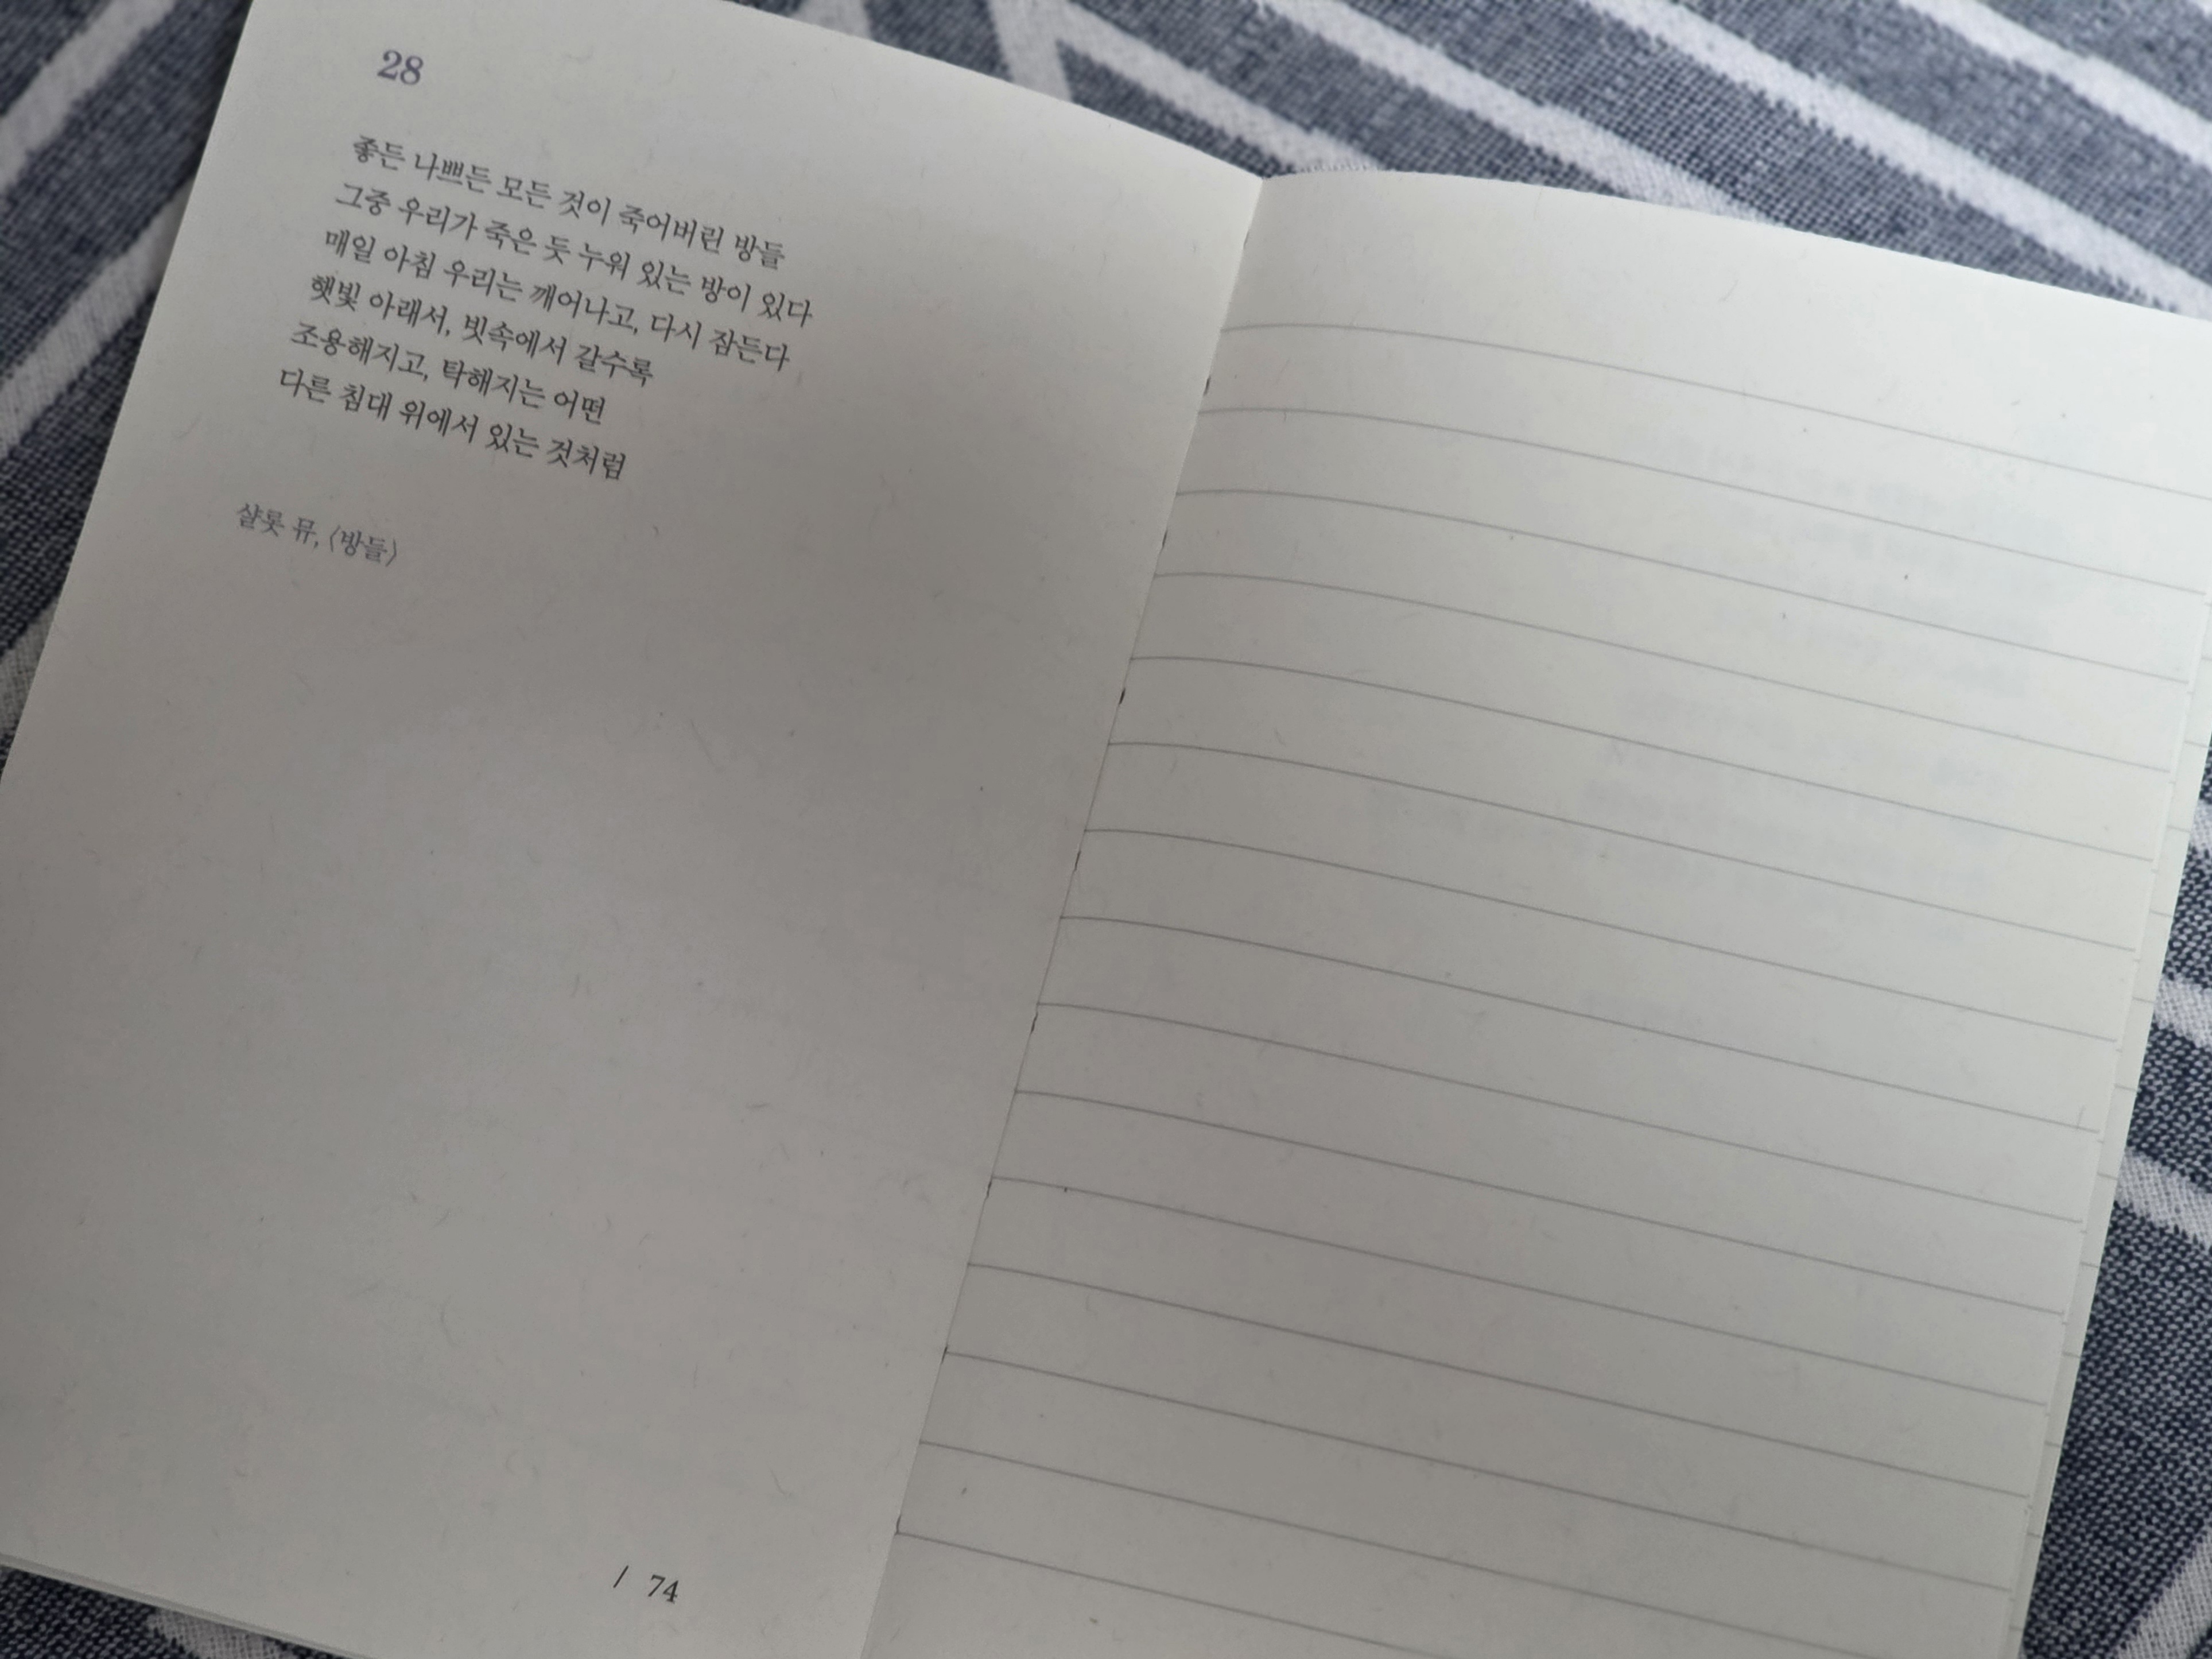 28
좋든 나쁘든 모든 것이 죽어버린 방들
그중 우리가 죽은 듯 누워 있는 방이 있다
매일 아침 우리는 깨어나고, 다시 잠든다
햇빛 아래서, 빗속에서 갈수록
조용해지고, 탁해지는 어떤
다른 침대 위에서 있는 것처럼
샬롯 뮤, 〈방들〉
/ 74